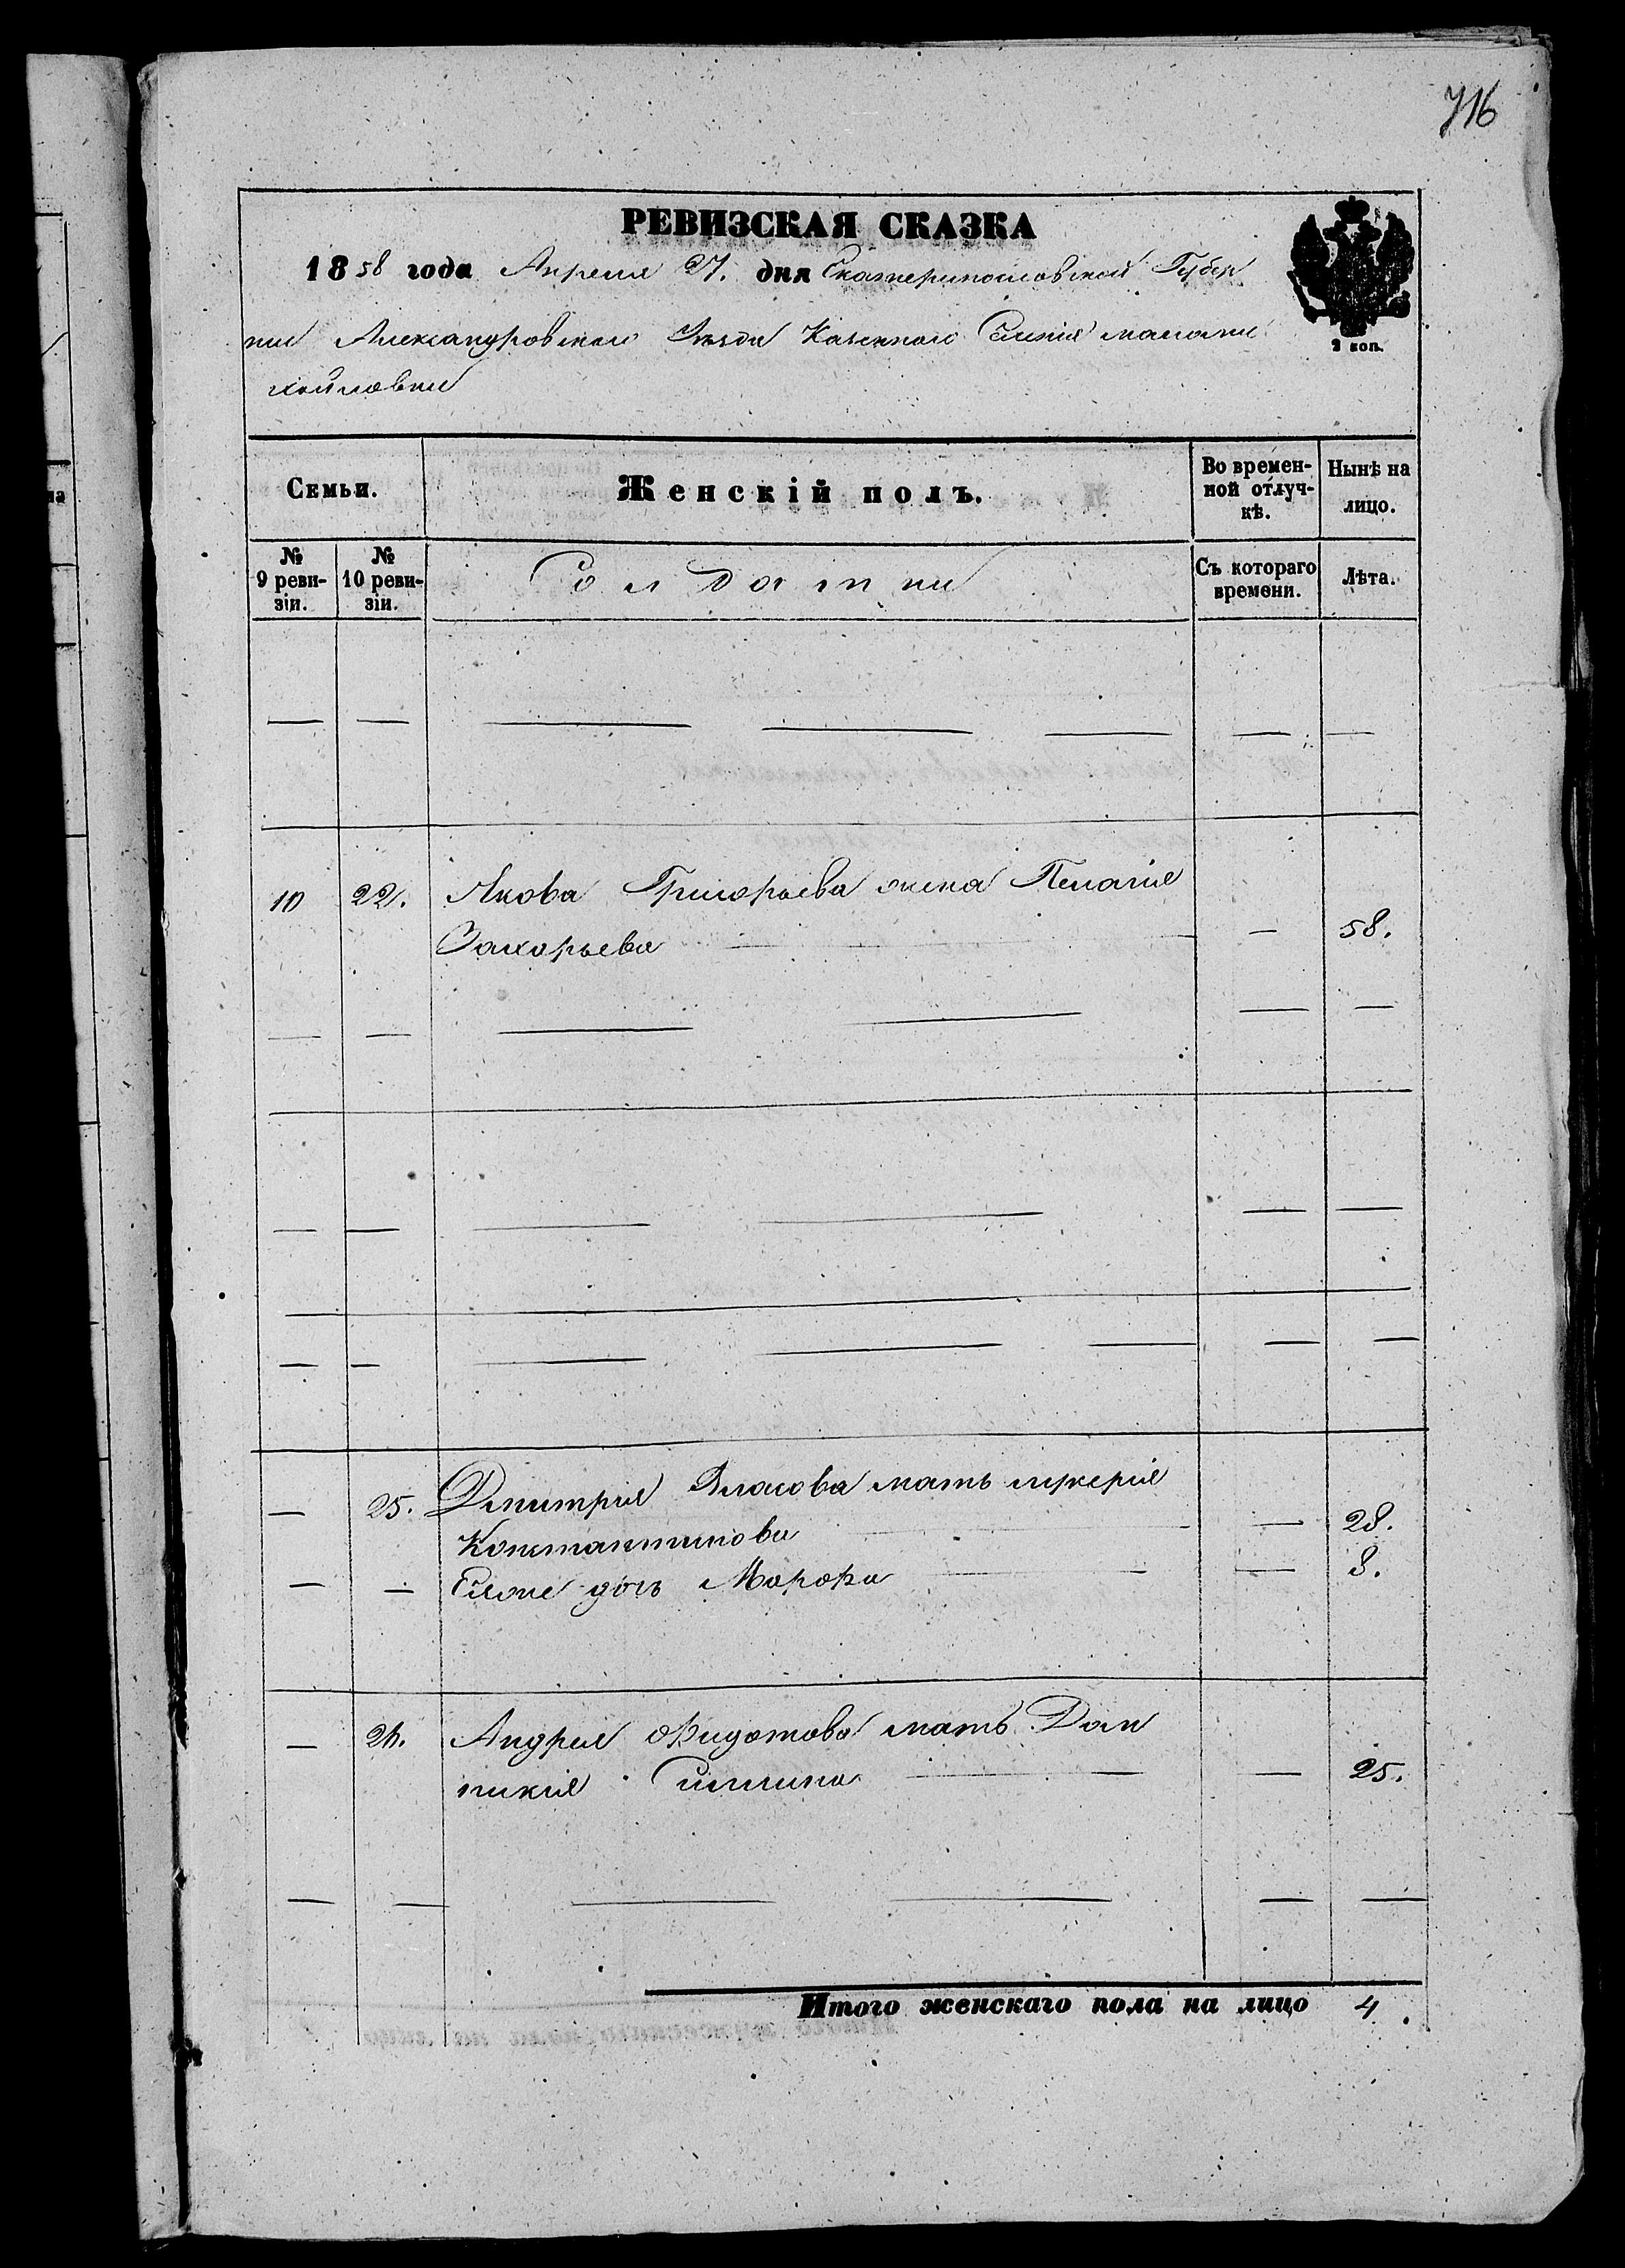 716
РЕВИЗСКАЯ СКАЗКА
1858 года Апреля 27. дня Екатеринославской Губер
нии Александровского Уезда Казенного Селения
хайловки
2 коп.
Семьи.
Женскій полъ.
Во времен-
ной отлуч-
кѣ.
Нынѣ на
лицо.
№
9 реви-
зіи.
№
10 реви-
зіи.
Солдатки
Съ котораго
времени.
Лѣта.
10 22. Якова Григорьева жена Пелагия
Захарьева — 58.
— 25. Дмитрия Власова мать лукерия
Константинова — 28.
— — Ея доч Марфа — 8.
— 26. Андрея Фидотова мать Дом
никия — 25.
Итого женскаго пола на лицо 4.